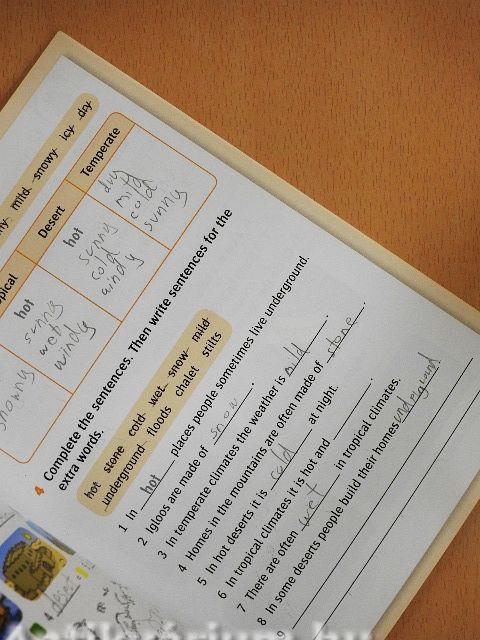 mild snowy icy dry
Tropical Desert Temperate
hot hot dry
sunny sunny mild
wet cold cold
windy windy sunny
4 Complete the sentences. Then write sentences for the
extra words.
hot stone cold wet snow mild
underground floods chalet stilts
1 In hot places people sometimes live underground.
2 Igloos are made of snow.
3 In temperate climates the weather is mild.
4 Homes in the mountains are often made of stone.
5 In hot deserts it is cold at night.
6 In tropical climates it is hot and wet.
7 There are often in tropical climates.
8 In some deserts people build their homes underground
9